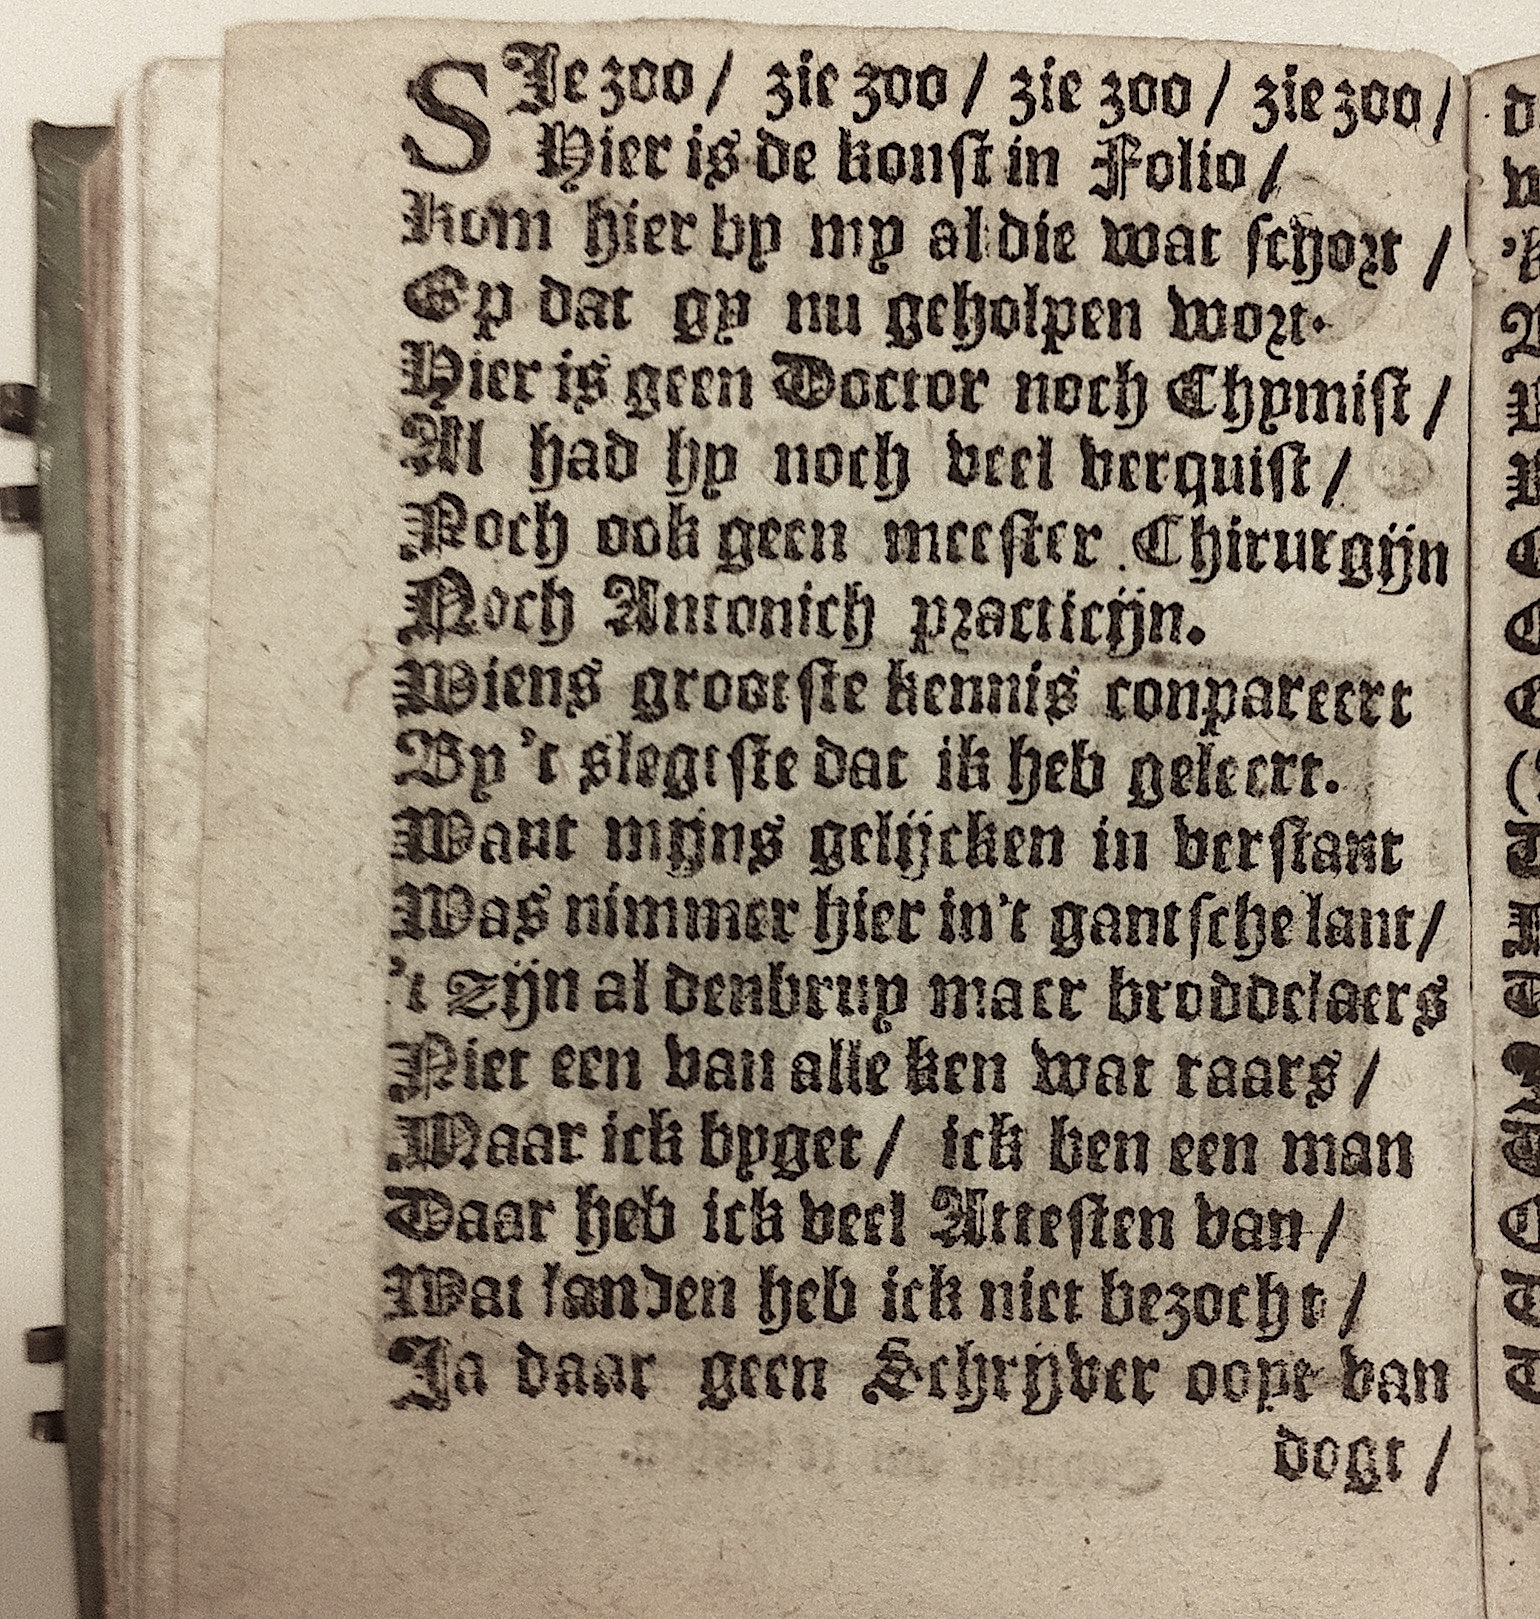 SIe zoo / zie zoo / zie zoo / zie zoo /
Hier is de konst in Folio /
Kom hier by my al die wat schort /
Ey dat gy nu geholpen wort.
Hier is geen Doctor noch Chymist /
Al had hy noch veel verquist /
Noch ook geen meester Chirurgijn
Noch Antonich practicijn.
Wiens grootste kennis conpareert
By 't slegtste dat ik heb geleert.
Want mijns gelijcken in verstant
Was nimmer hier in 't gantsche lant /
't Zijn al den bruy maer broddelaers
Niet een van alle ken wat raars /
Maar ick byget / ick ben een man
Daar heb ick veel Attesten van /
Wat landen heb ick niet bezocht /
Ja daar geen Schrijver oope van
dogt /